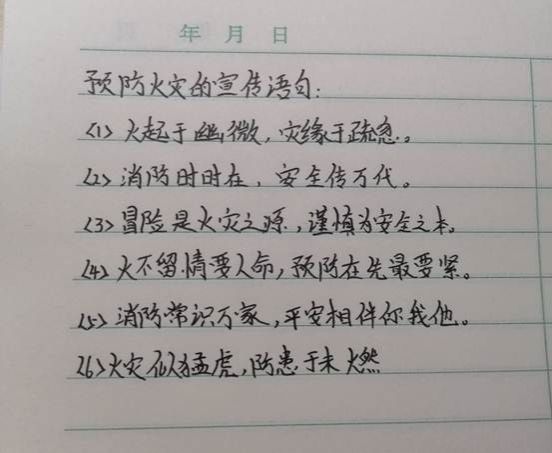 年 月 日
预防火灾的宣传语句:
<1> 火起于幽微, 灾缘于疏忽。
<2> 消防时时在, 安全传万代。
<3> 冒险是火灾之源, 谨慎为安全之本。
<4> 火不留情要人命, 预防在先最要紧。
<5> 消防常识万家, 平安相伴你我他。
<6> 火灾似猛虎, 防患于未燃